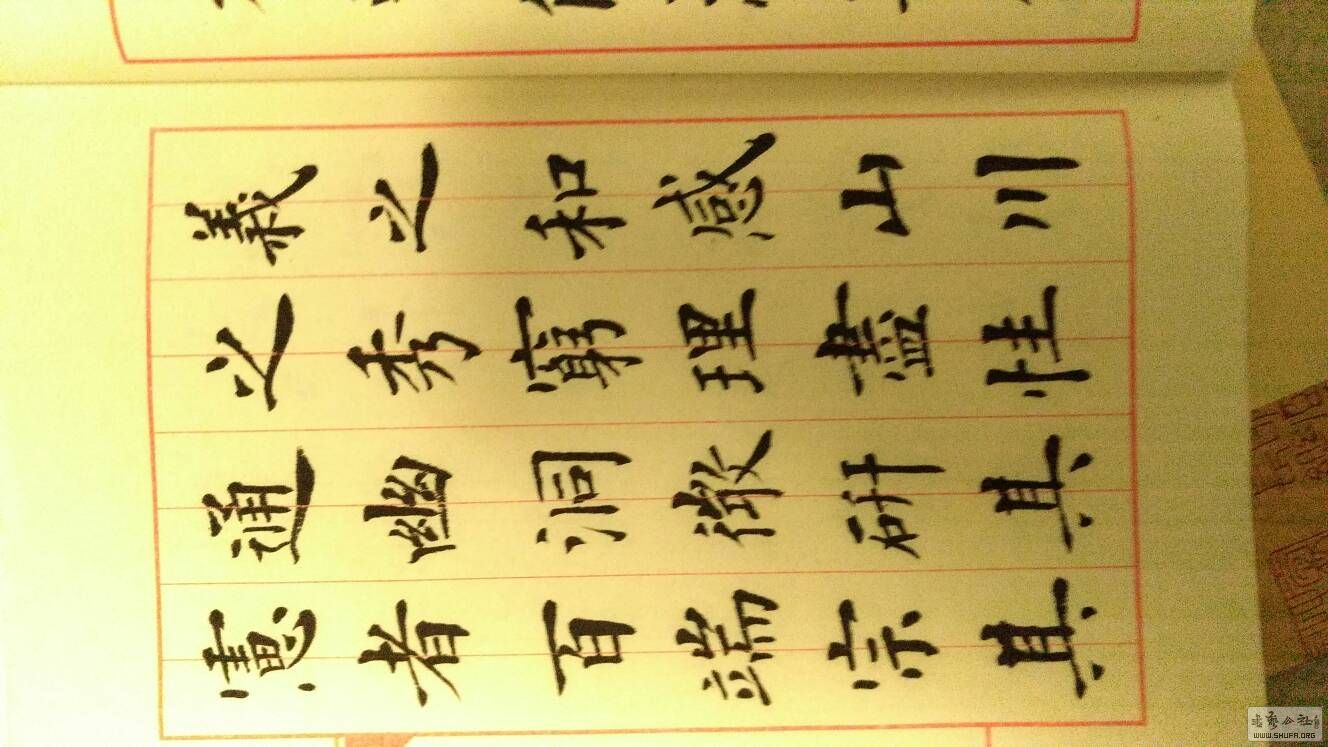 義之和感山川
之秀窮理盡性
通幽洞微研其
憲者百端宗其
WWW.SHUFA.ORG